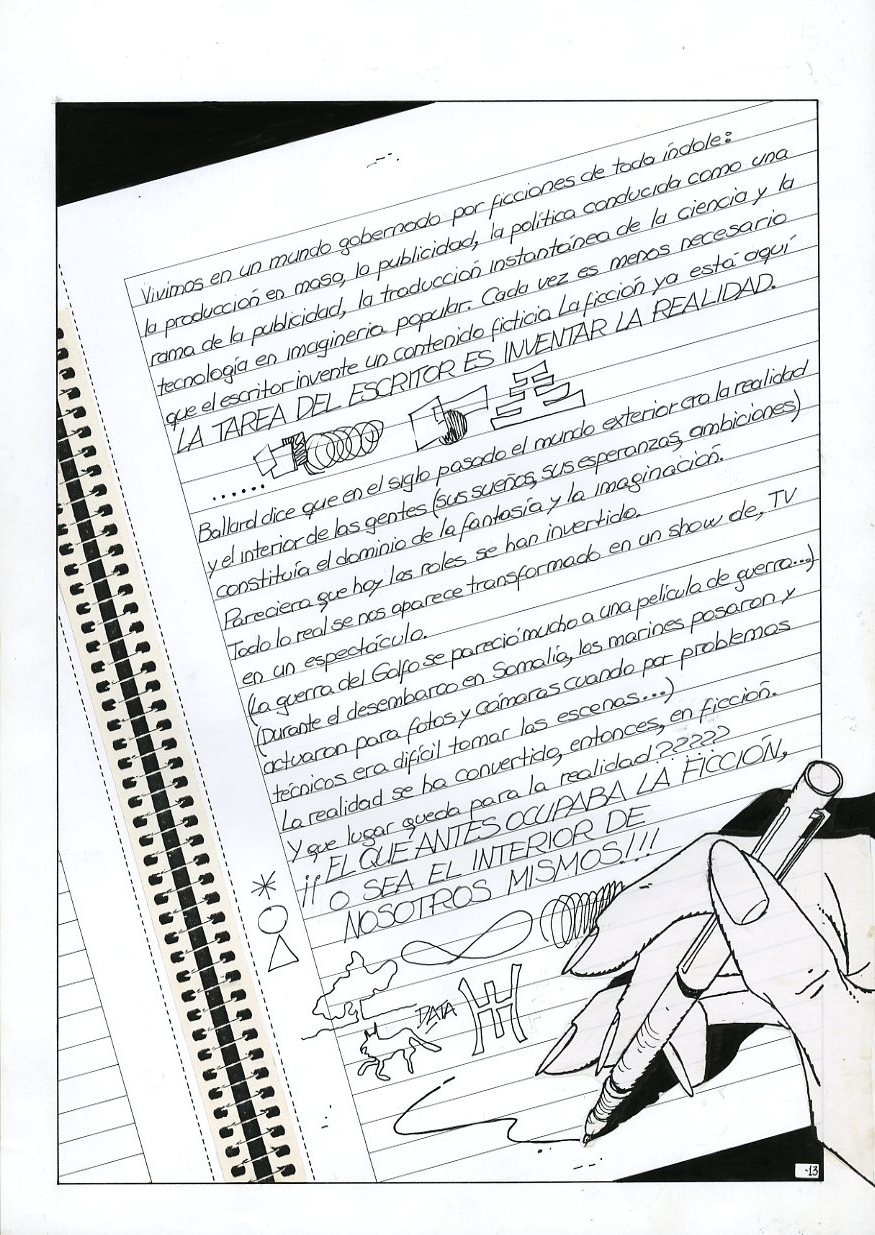 Vivimos en un mundo gobernado por ficciones de toda índole:
la producción en masa, la publicidad, la política conducida como una
rama de la publicidad, la traducción instantánea de la ciencia y la
tecnología en imaginería popular. Cada vez es menos necesario
que el escritor invente un contenido ficticio. La ficción ya está aquí
LA TAREA DEL ESCRITOR ES INVENTAR LA REALIDAD.
Ballard dice que en el siglo pasado el mundo exterior era la realidad
y el interior de las gentes (sus sueños, sus esperanzas, ambiciones)
constituía el dominio de la fantasía y la imaginación.
Pareciera que hoy los roles se han invertido.
Todo lo real se nos aparece transformado en un show de, TV
en un espectáculo.
(La guerra del Golfo se pareció mucho a una película de guerra...)
(Durante el desembarco en Somalía, los marines posaron y
actuaron para fotos y cámaras cuando por problemas
técnicos era difícil tomar las escenas...)
La realidad se ha convertido, entonces, en ficción.
Y que lugar queda para la realidad?????
¡¡EL QUE ANTES OCUPABA LA FICCIÓN,
O SEA EL INTERIOR DE
NOSOTROS MISMOS!!!
DATA
-13